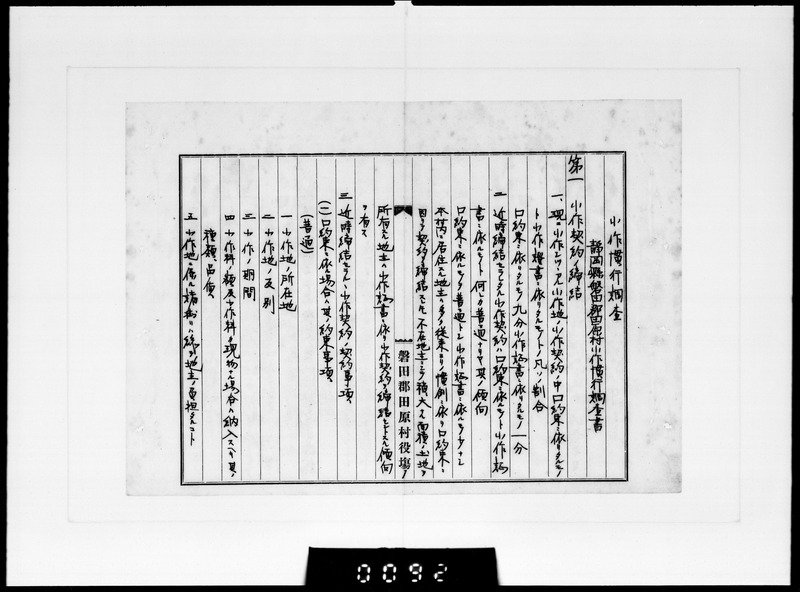 小作慣行調査
静岡縣磐田郡田原村小作慣行調査書
第一 小作契約ノ締結
一、現ニ小作シツヽアル小作地ノ小作契約ノ中口約束ニ依リタルモノ
ト小作證書ニ依リタルモノトノ凡ソノ割合
口約束ニ依リタルモノ九分小作証書ニ依リタルモノ一分
二 近時締結セラルヽ小作契約ハ口約束ニ依ルモノト小作証
書ニ依ルモノト何レカ普通ナリヤ其ノ傾向
口約束ニ依ルモノヲ普通トシ小作証書ニ依ルモノ少ナシ
本村内ニ居住スル地主ハ多ク従来ヨリノ慣例ニ依リ口約束ニ
因ツテ契約ヲ締結スルモ不在地主ニシテ廣大ナル面積ノ土地ヲ
磐田郡田原村役場
所有スル地主ハ小作証書ニ依リ小作契約ヲ締結セントスル傾向
ヲ有ス
三 近時締結セラルヽ小作契約ノ契約事項
(一)口約束ニ依ル場合ハ其ノ約束事項
(普通)
一 小作地ノ所在地
二 小作地ノ反別
三 小作ノ期間
四 小作料ノ額及小作料ガ現物ナル場合ハ納入スベキ其ノ
種類品質
五 小作地ニ属スル諸掛リハ総テ地主ノ負担タルコト
0092